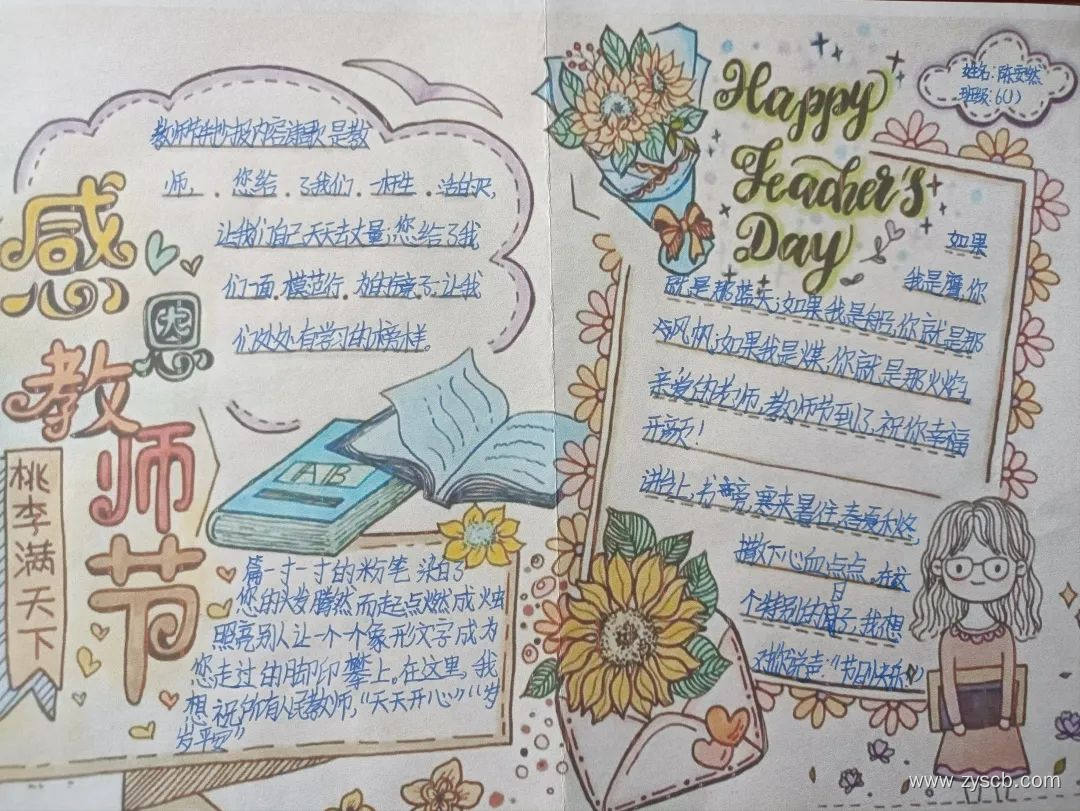 感恩
教师节
桃李满天下
教师节手抄报内容诗歌是教
师，您给了我们一杆生活的尺，
让我们自己天天去丈量；您给了我
们一面模范行为的镜子；让我
们处处有学习的榜样。
AB
篇一寸一寸的粉笔染白了
您的头发腾然而起点燃成烛
照亮别人让一个个象形文字成为
您走过的脚印攀上。在这里，我
想祝所有人民教师，“天天开心”“岁
岁平安”
Happy
Teacher's
Day
姓名：陈安然
班级：6(1)
如果
我是鹰，你
就是那蓝天；如果我是船，你就是那
风帆；如果我是煤，你就是那火焰
亲爱的老师，教师节到了，祝你幸福
开颜！
讲台上，书旁，寒来暑往，春夏秋冬，
撒下心血点点，在这
个特别的日子，我想
对你说声：“节日快乐”
www.zyscb.com